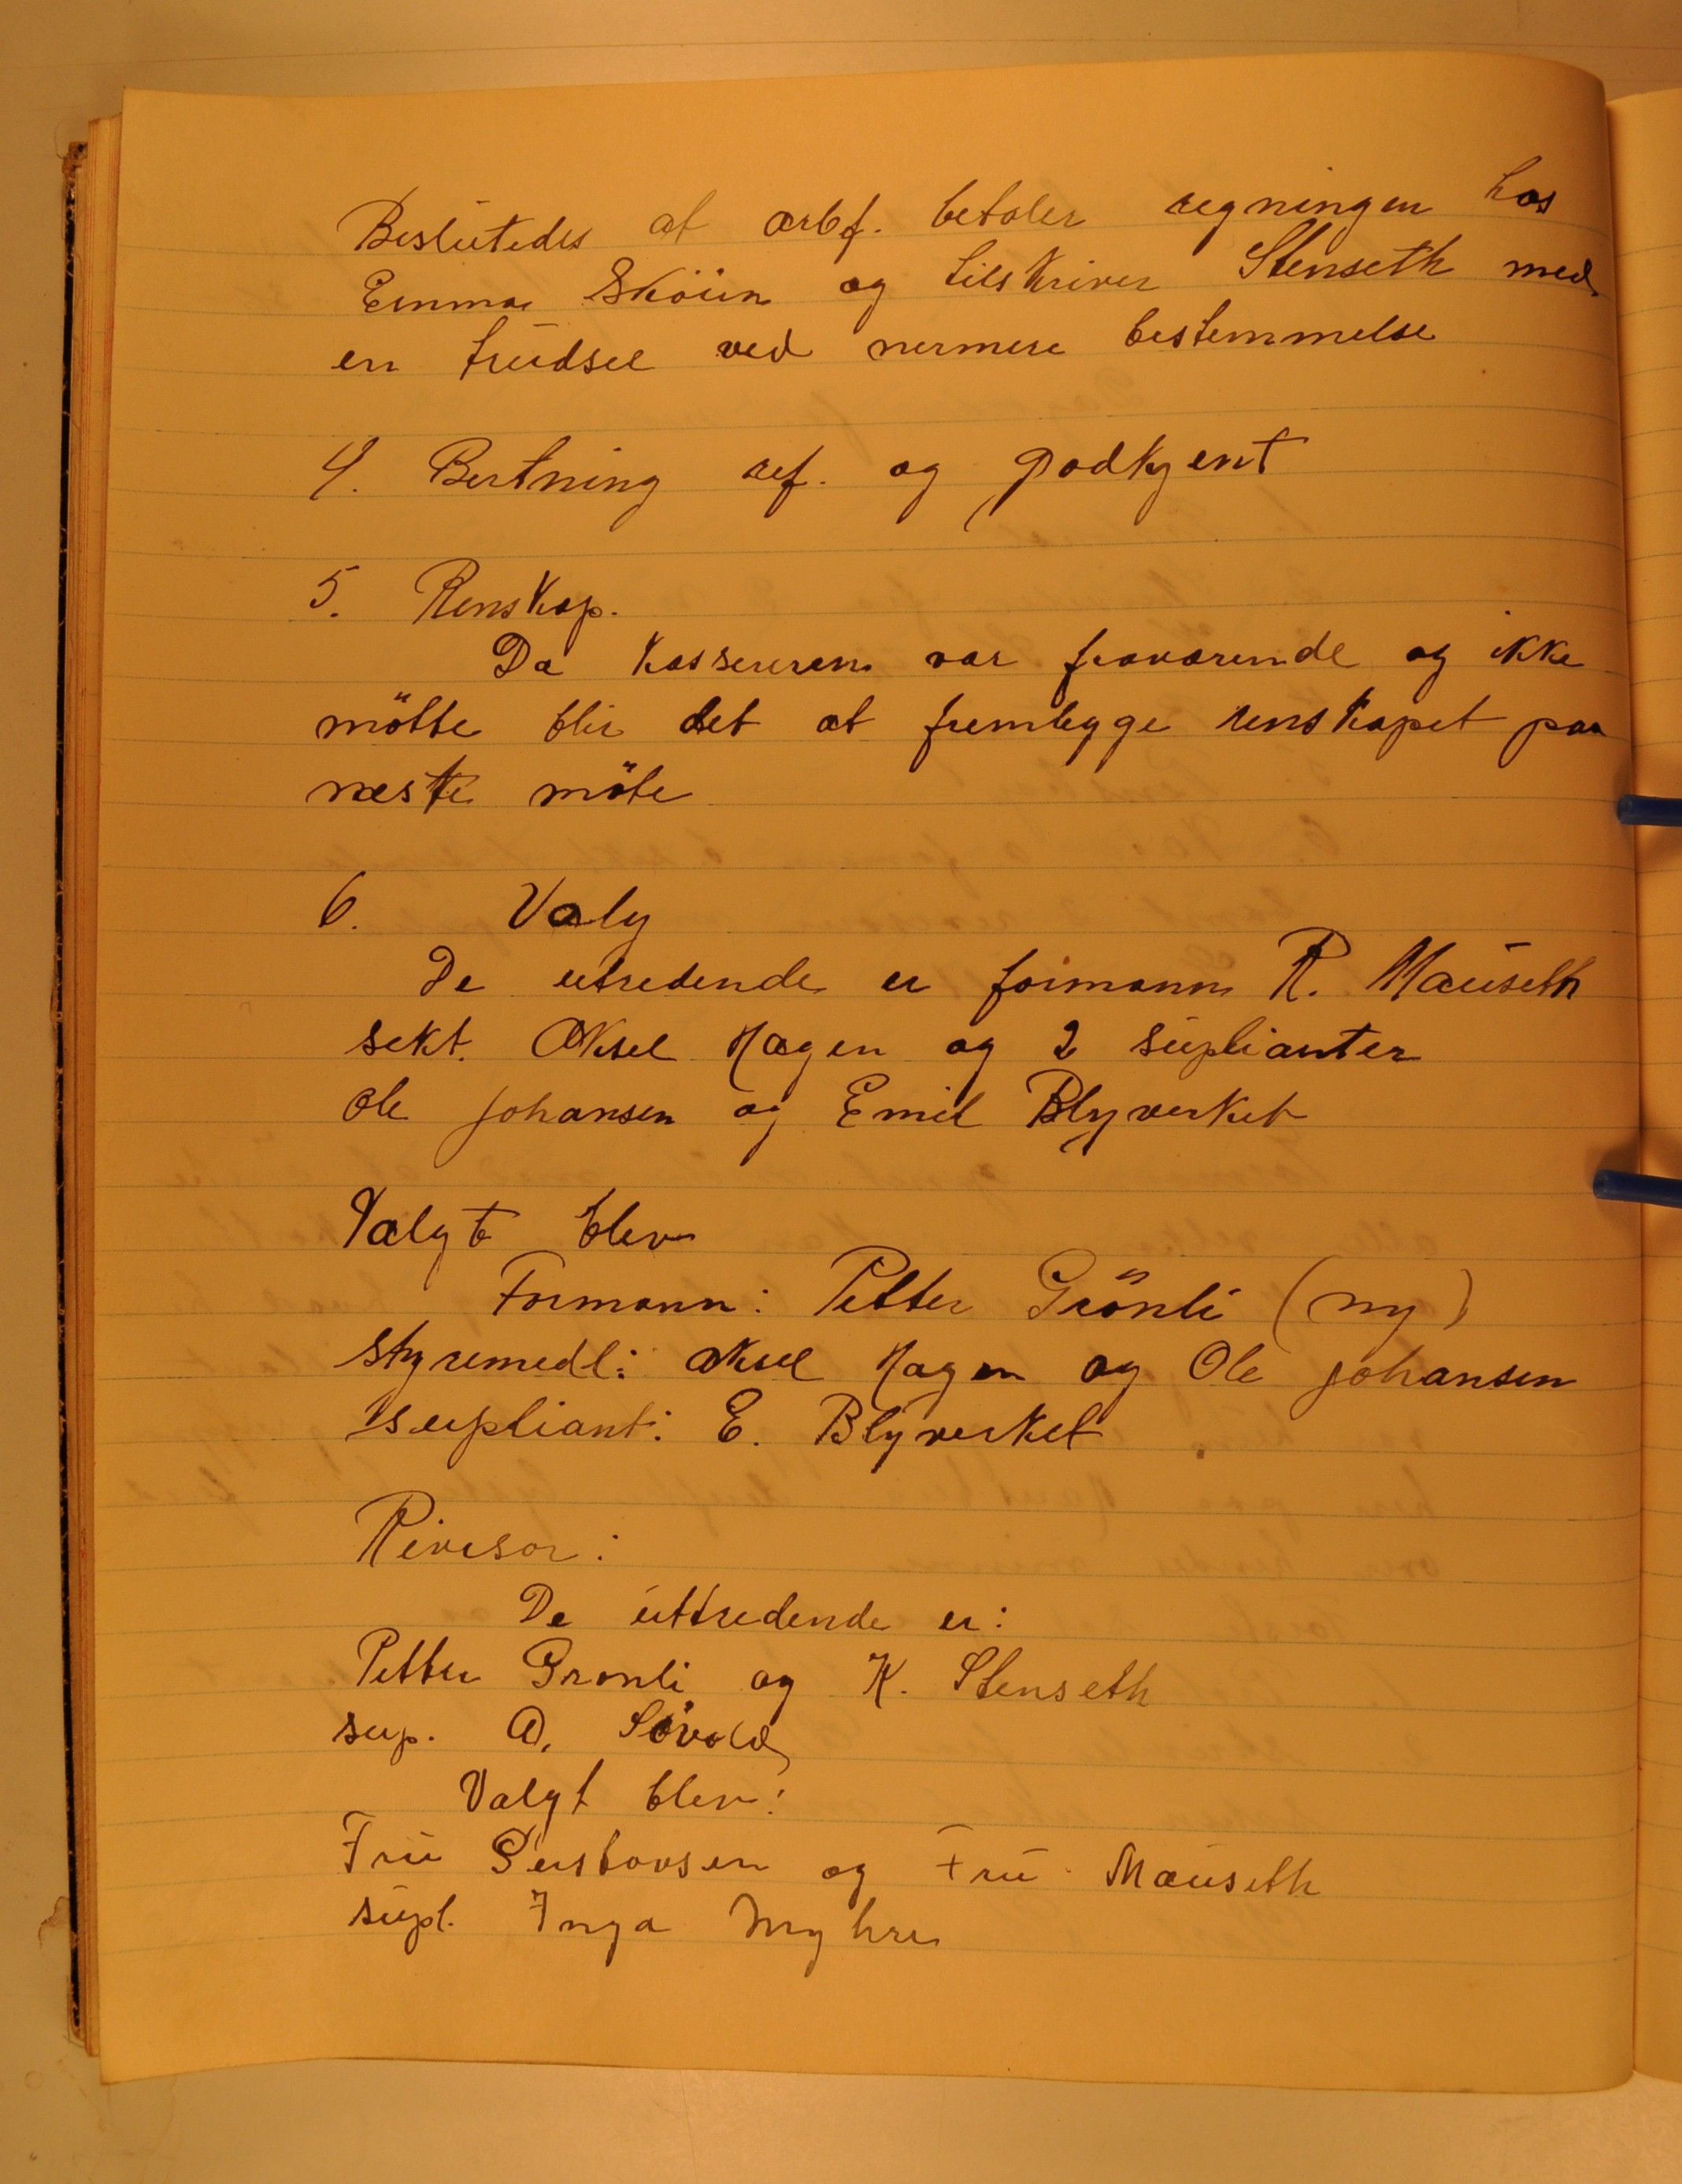 Beslutedes at arbf. betaler regningen hos
Emma Sköien og tilskriver Stenseth med
en trudsel ved nermere bestemmelse
4. Bertning ref. og godkjent
5. Renskap.
Da kassereren var fraværende og ikke
mötte blir det at fremlegge renskapet paa
neste möte
6. Valg
De utredende er formann R. Mauseth
sekt. Aksel Hagen og 2 suplianter
Ole Johansen og Emil Blyverket
Valgt blev
Formann: Petter Grönli (ny)
Styremedl: Aksel Hagen og Ole Johansen
supliant: E. Blyverket
Revisor:
De uttredende er:
Petter Gronli og K. Stenseth
sup. A. Sövold
Valgt blev:
Fru Gustavsen og Fru Mauseth
supl. Inga Myhre